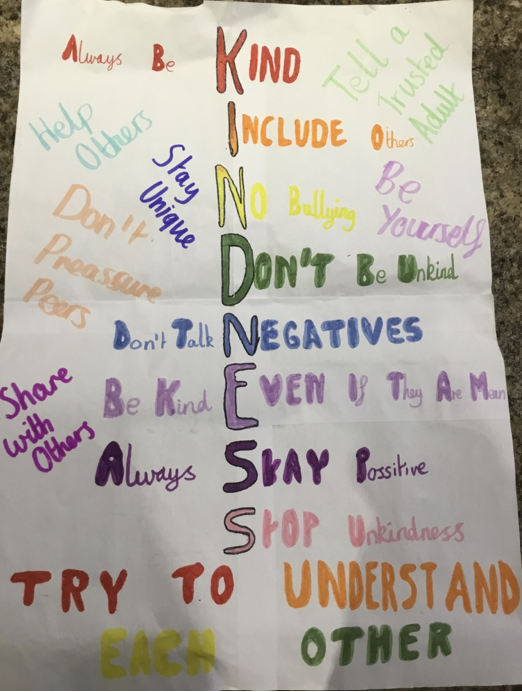 Always Be KIND
Tell a
Trusted
Adult
Help
Others
INCLUDE Others
Stay
Unique
NO Bullying
Be
Yourself
Don't
Preassure
Peers
DON'T Be Unkind
Don't Talk NEGATIVES
Be Kind EVEN If They Are Mean
Share
with
Others
Always STAY Possitive
STOP Unkindness
TRY TO UNDERSTAND
EACH OTHER